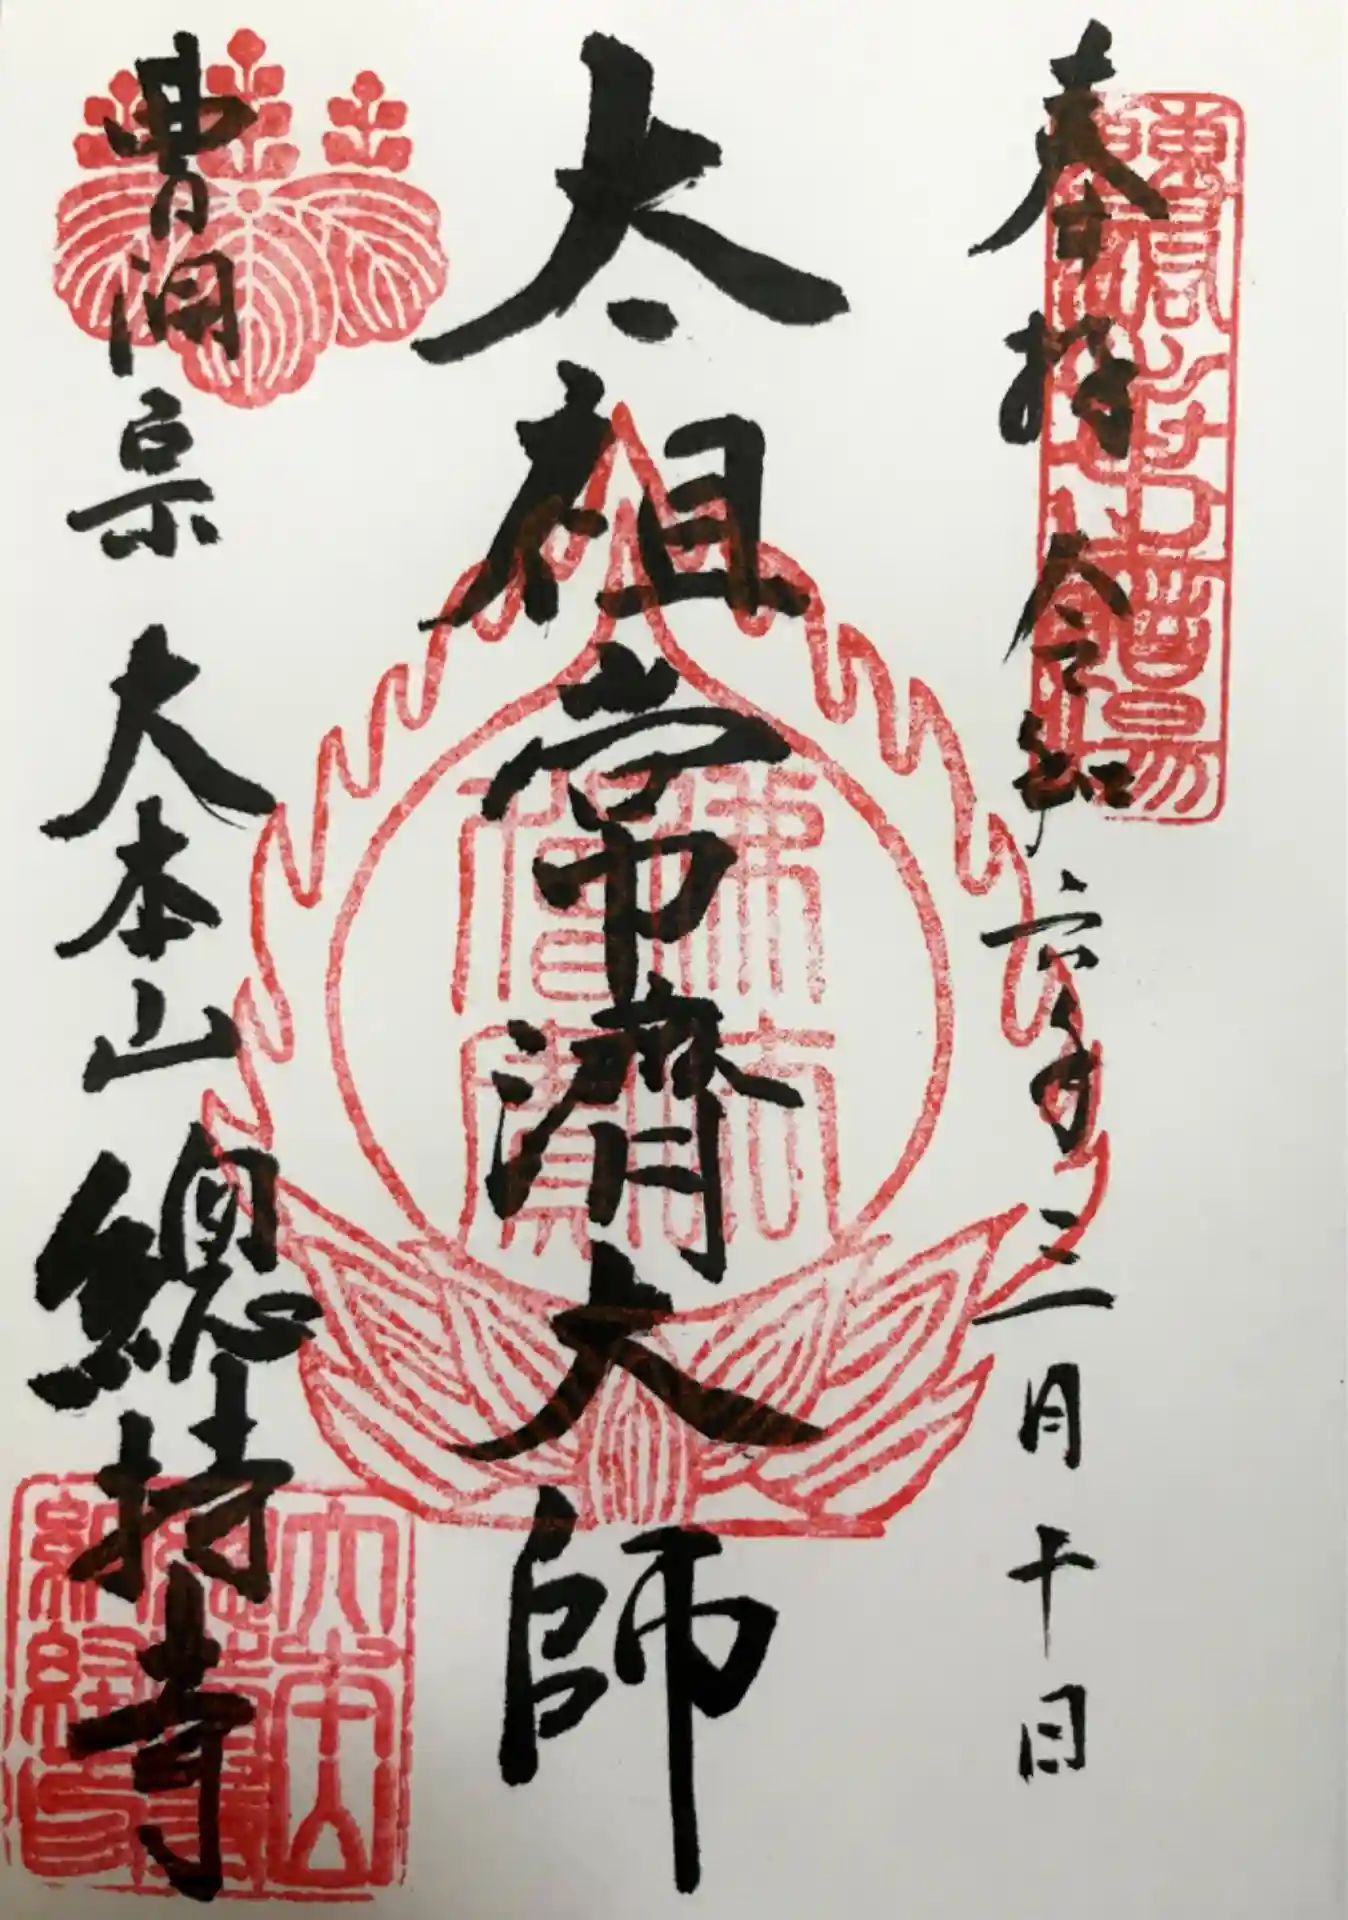 奉拝 令和六年三月十日
太祖常濟大師
曹洞宗 大本山 總持寺
佛法僧寳
大本山總持寺納経印